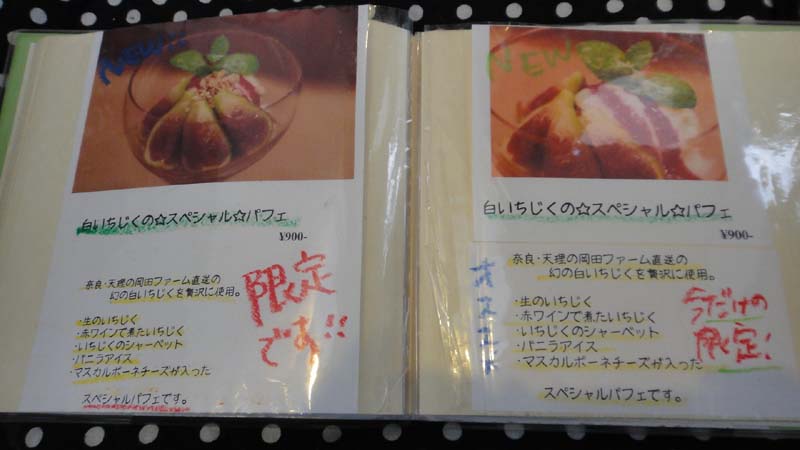 NEW!!!
白いちじくの☆スペシャル☆パフェ
¥900-
奈良・天理の岡田ファーム直送の
幻の白いちじくを贅沢に使用。
・生のいちじく
・赤ワインで煮たいちじく
・いちじくのシャーベット
・バニラアイス
・マスカルポーネチーズが入った
スペシャルパフェです。
限定
であ!!
NEW
白いちじくの☆スペシャル☆パフェ
¥900-
奈良・天理の岡田ファーム直送の
幻の白いちじくを贅沢に使用。
・生のいちじく
・赤ワインで煮たいちじく
・いちじくのシャーベット
・バニラアイス
・マスカルポーネチーズが入った
スペシャルパフェです。
オススメ
今だけの
限定!